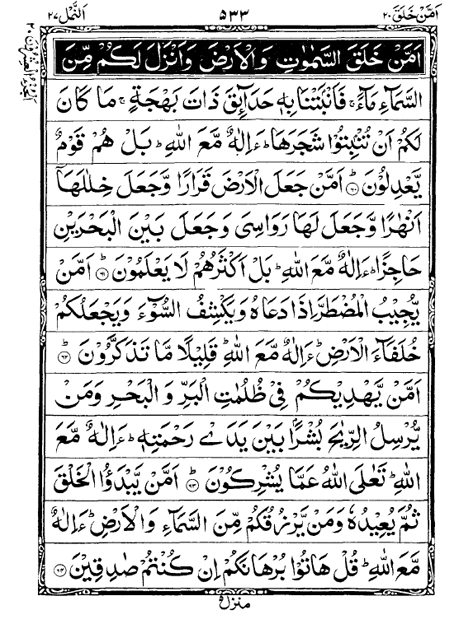 اَمَّنْ خَلَقَ ٢٠
٥٣٣
اَلنَّمْل ٢٧
اَمَّنْ خَلَقَ السَّمٰوٰتِ وَالْاَرْضَ وَاَنْزَلَ لَكُمْ مِّنَ
السَّمَآءِ مَآءً ۚ فَاَنْۢبَتْنَا بِهٖ حَدَآئِقَ ذَاتَ بَهْجَةٍ ۚ مَا كَانَ
لَكُمْ اَنْ تُنْۢبِتُوْا شَجَرَهَا ؕ ءَاِلٰهٌ مَّعَ اللّٰهِ ؕ بَلْ هُمْ قَوْمٌ
يَّعْدِلُوْنَ ؕ﴿۶۰﴾ اَمَّنْ جَعَلَ الْاَرْضَ قَرَارًا وَّجَعَلَ خِلٰلَهَاۤ
اَنْهٰرًا وَّجَعَلَ لَهَا رَوَاسِيَ وَجَعَلَ بَيْنَ الْبَحْرَيْنِ
حَاجِزًا ؕ ءَاِلٰهٌ مَّعَ اللّٰهِ ؕ بَلْ اَكْثَرُهُمْ لَا يَعْلَمُوْنَ ؕ﴿۶۱﴾ اَمَّنْ
يُّجِيْبُ الْمُضْطَرَّ اِذَا دَعَاهُ وَيَكْشِفُ السُّوْٓءَ وَيَجْعَلُكُمْ
خُلَفَآءَ الْاَرْضِ ؕ ءَاِلٰهٌ مَّعَ اللّٰهِ ؕ قَلِيْلًا مَّا تَذَكَّرُوْنَ ؕ﴿۶۲﴾
اَمَّنْ يَّهْدِيْكُمْ فِيْ ظُلُمٰتِ الْبَرِّ وَالْبَحْرِ وَمَنْ
يُّرْسِلُ الرِّيٰحَ بُشْرًۢا بَيْنَ يَدَيْ رَحْمَتِهٖ ؕ ءَاِلٰهٌ مَّعَ
اللّٰهِ ؕ تَعٰلَى اللّٰهُ عَمَّا يُشْرِكُوْنَ ؕ﴿۶۳﴾ اَمَّنْ يَّبْدَؤُا الْخَلْقَ
ثُمَّ يُعِيْدُهٗ وَمَنْ يَّرْزُقُكُمْ مِّنَ السَّمَآءِ وَالْاَرْضِ ؕ ءَاِلٰهٌ
مَّعَ اللّٰهِ ؕ قُلْ هَاتُوْا بُرْهَانَكُمْ اِنْ كُنْتُمْ صٰدِقِيْنَ ﴿۶۴﴾
منزل ٥